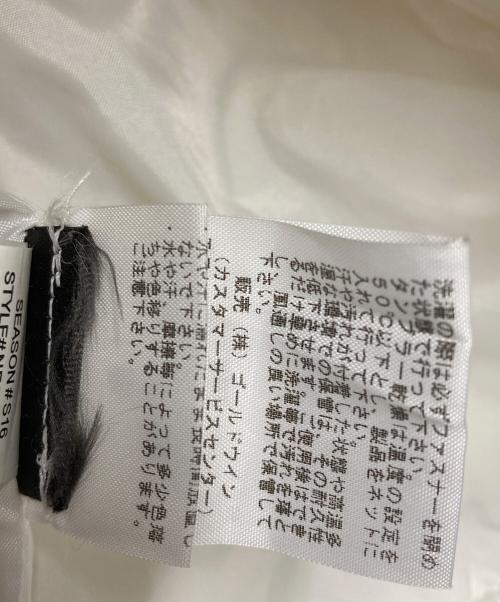 洗濯の際は必ずファスナーを閉め
た状態で行って下さい。
タンブラー乾燥は温度の設定を
50℃以下とし、製品をネットに
入れて行って下さい。
汗や汚れが付着した状態や高温多
環境下での保管は、その耐久性
を低下させます。ご使用後は
早めに洗濯等で汚れを落と
し、風通しの良い場所で保管して
下さい。
販売 (株)ゴールドウイン
(カスタマーサービスセンター)
ないで下さい。
水や汗、摩擦等によって多少色落
ちや色移りすることがあります。
ご注意下さい。
SEASON # S16
STYLE#